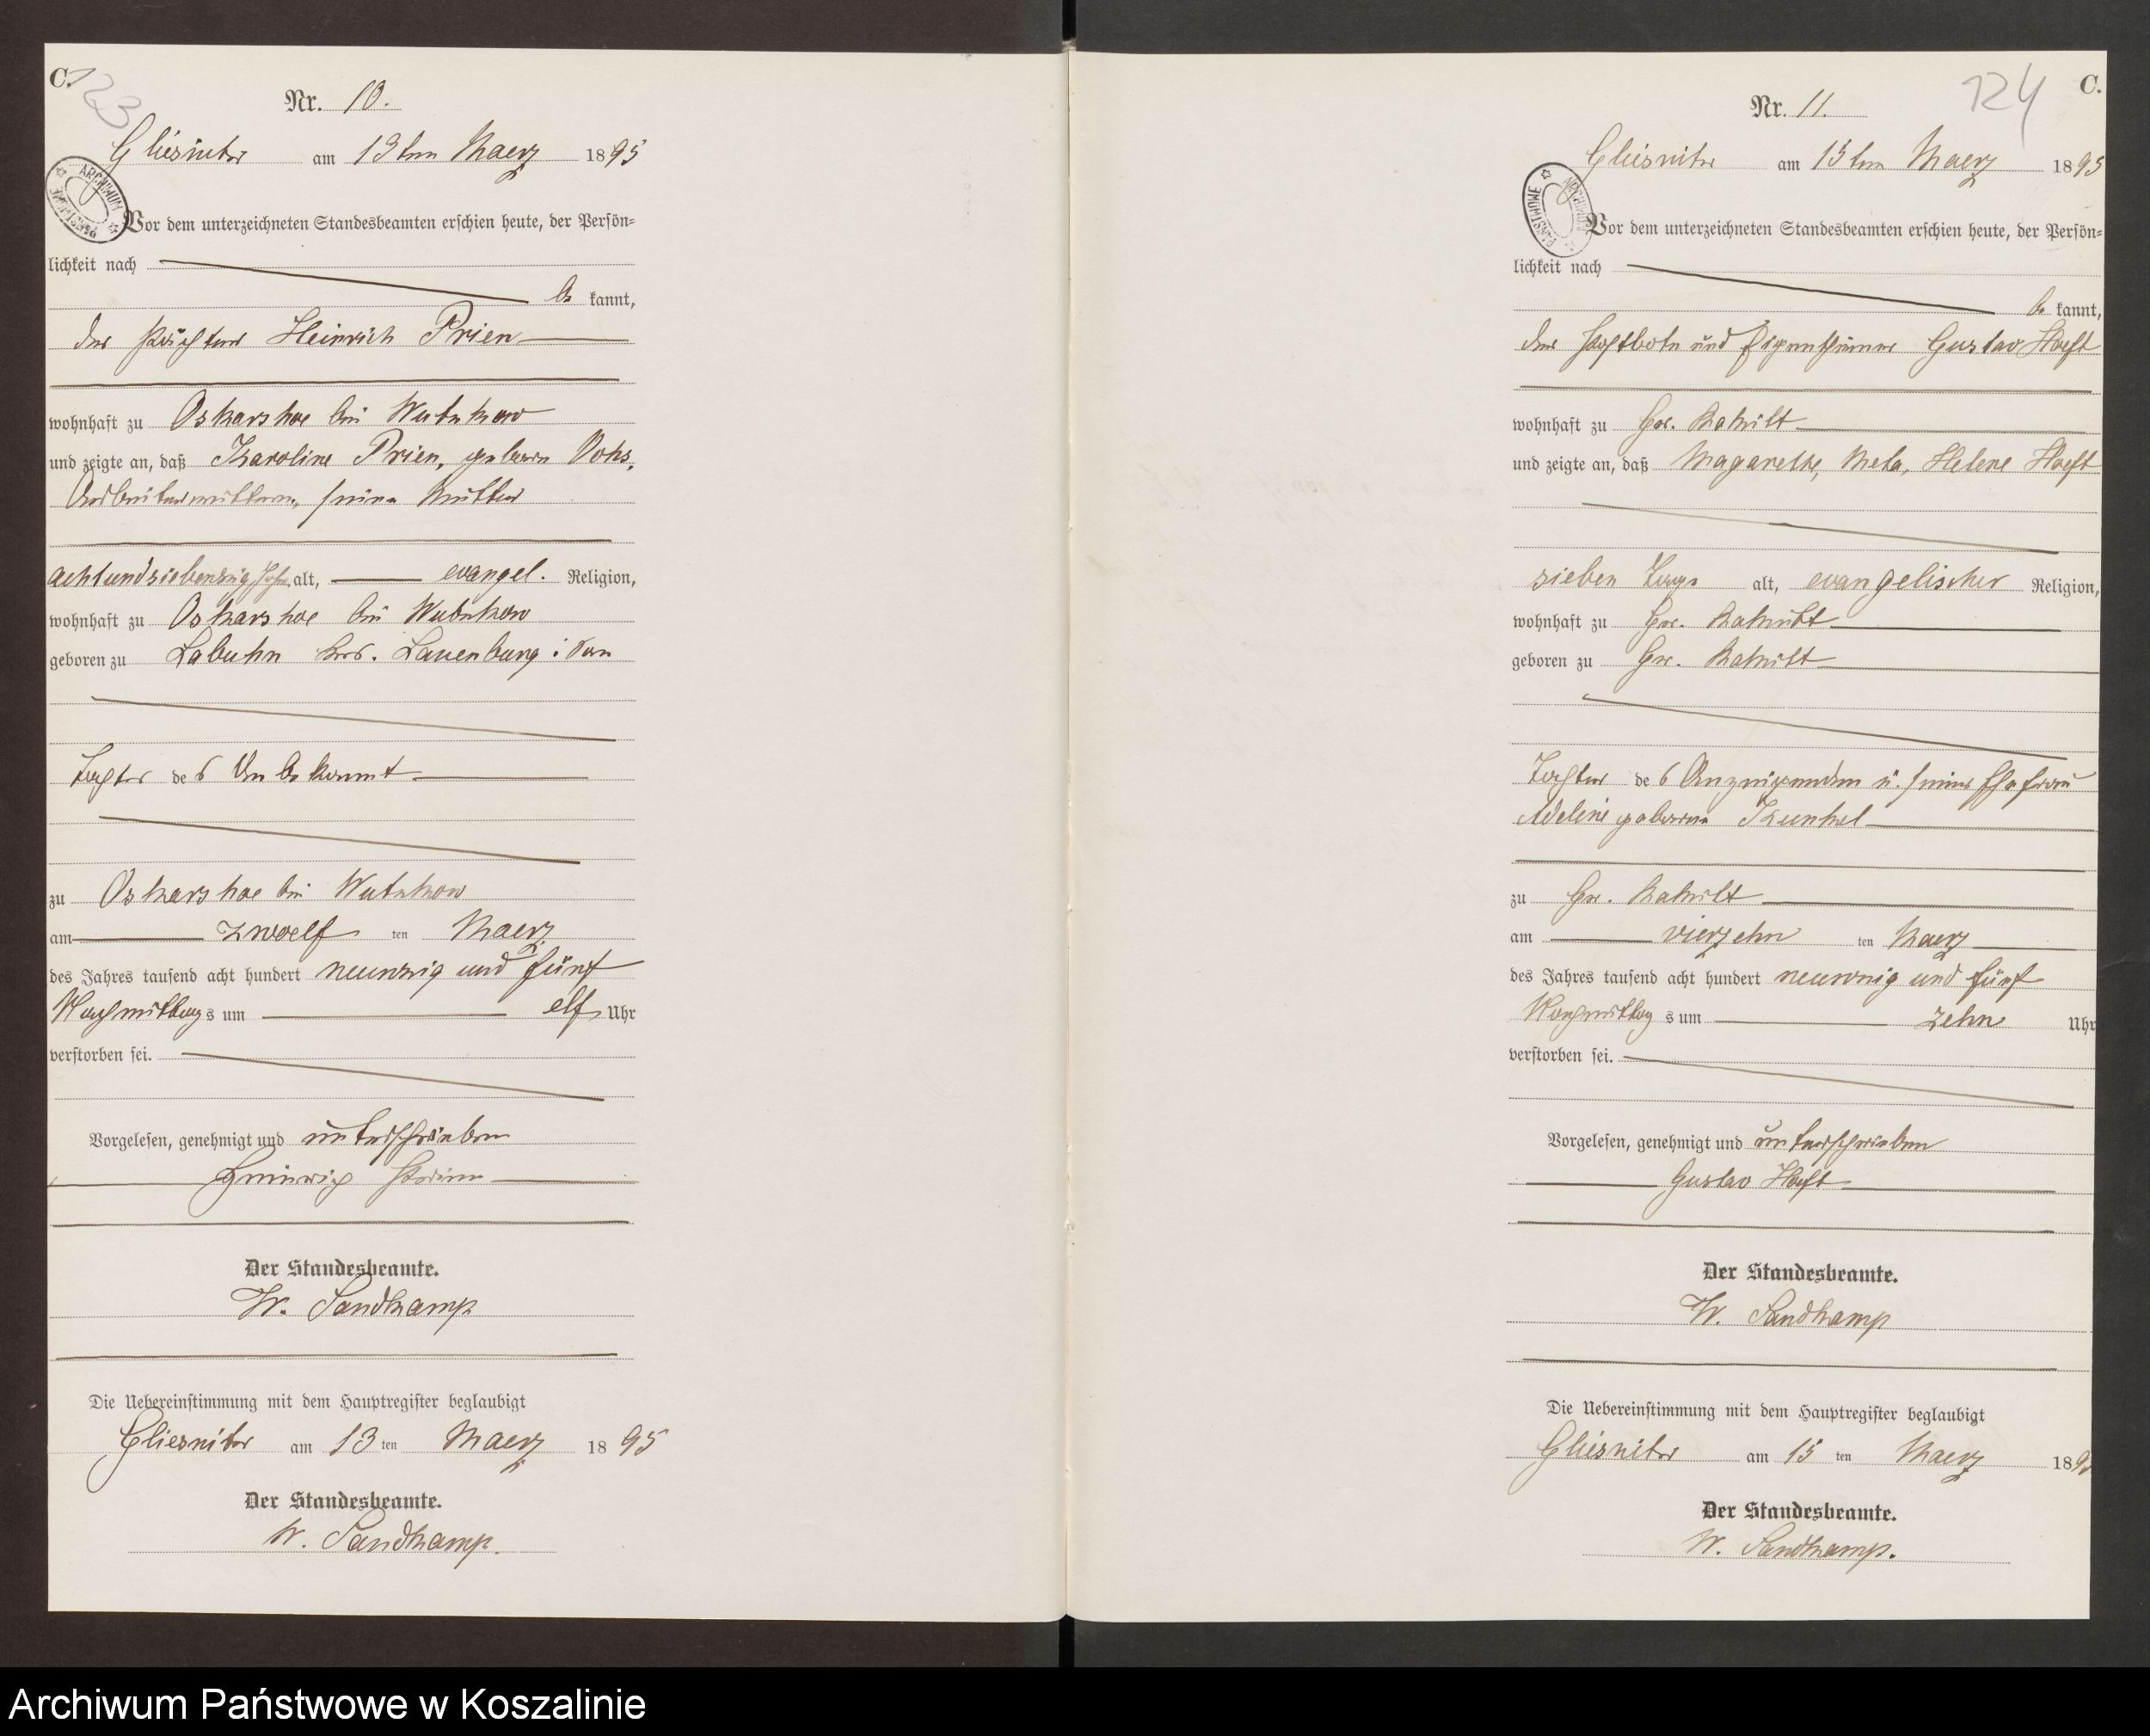 C.
123
Nr. 10.
Gliesnitz am 13ten Maerz 1895
ARCHIWUM PAŃSTWOWE
Vor dem unterzeichneten Standesbeamten erschien heute, der Persön-
lichkeit nach
be kannt,
der Pächter Heinrich Prien
wohnhaft zu Oskarshoe bei Wutzkow
und zeigte an, daß Karoline Prien, geborne Vohs,
Arbeiterwittwe, seine Mutter
achtundsiebenzig Jahre alt, evangel. Religion,
wohnhaft zu Oskarshoe bei Wutzkow
geboren zu Labuhn Krs. Lauenburg i Pom
Tochter des Unbekannt
zu Oskarshoe bei Wutzkow
am zwoelf ten Maerz
des Jahres tausend acht hundert neunzig und fünf
Nachmittags um elf Uhr
verstorben sei.
Vorgelesen, genehmigt und unterschrieben
Heinrich Prien
Der Standesbeamte.
W. Sandkamp
Die Uebereinstimmung mit dem Hauptregister beglaubigt
Gliesnitz am 13 ten Maerz 1895
Der Standesbeamte.
W. Sandkamp.
124
C.
Nr. 11.
Gliesnitz am 15ten Maerz 1895
ARCHIWUM PAŃSTWOWE
Vor dem unterzeichneten Standesbeamten erschien heute, der Persön-
lichkeit nach
be kannt,
der Postbote und Eigenthümer Gustav Hoeft
wohnhaft zu Gr. Rakitt
und zeigte an, daß Magarethe, Meta, Helene Hoeft
sieben Tage alt, evangelischer Religion,
wohnhaft zu Gr. Rakitt
geboren zu Gr. Rakitt
Tochter des Anzeigenden u. seiner Ehefrau
Adeline geborne Kunkel
zu Gr. Rakitt
am vierzehn ten Maerz
des Jahres tausend acht hundert neunzig und fünf
Nachmittag s um zehn Uhr
verstorben sei.
Vorgelesen, genehmigt und unterschrieben
Gustav Hoeft
Der Standesbeamte.
W. Sandkamp
Die Uebereinstimmung mit dem Hauptregister beglaubigt
Gliesnitz am 15 ten Maerz 1895
Der Standesbeamte.
W. Sandkamp.
Archiwum Państwowe w Koszalinie